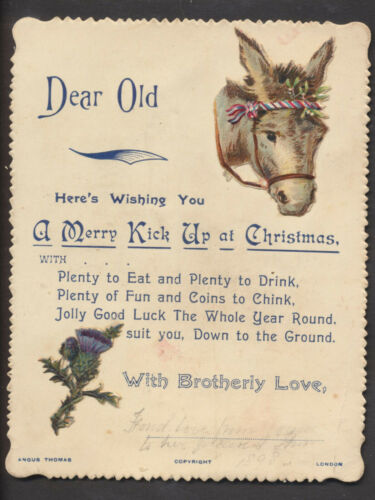 Dear Old
Here's Wishing You
A Merry Kick Up at Christmas,
WITH . . .
Plenty to Eat and Plenty to Drink,
Plenty of Fun and Coins to Chink,
Jolly Good Luck The Whole Year Round,
suit you, Down to the Ground.
With Brotherly Love,
Fond love from
to her
ANGUS THOMAS COPYRIGHT LONDON